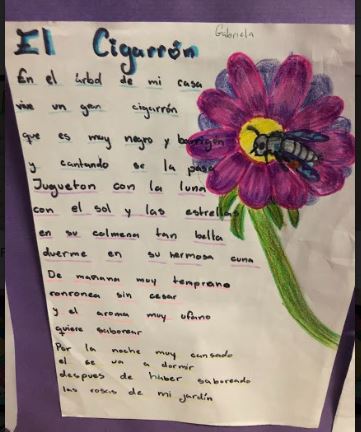 Gabriela
El Cigarrón
En el árbol de mi casa
vive un gran cigarrón
que es muy negro y barrigon
y cantando se la pasa
Jugueton con la luna
con el sol y las estrellas
en su colmena tan bella
duerme en su hermosa cuna
De mañana muy temprano
ronronea sin cesar
y el aroma muy ufano
quiere saborear
Por la noche muy cansado
el se va a dormir
despues de haber saboreado
las rosas de mi jardín